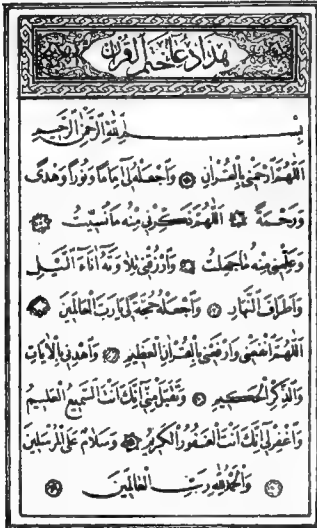 هذا دعاء ختم القرآن
بِسْمِ اللّٰهِ الرَّحْمٰنِ الرَّحِيمِ
اَللّٰهُمَّ ارْحَمْنِي بِالْقُرْاٰنِ وَاجْعَلْهُ لِي اِمَامًا وَنُورًا وَهُدًى
وَرَحْمَةً اَللّٰهُمَّ ذَكِّرْنِي مِنْهُ مَا نَسِيتُ
وَعَلِّمْنِي مِنْهُ مَا جَهِلْتُ وَارْزُقْنِي تِلَاوَتَهُ اٰنَاءَ الَّيْلِ
وَاَطْرَافَ النَّهَارِ وَاجْعَلْهُ حُجَّةً لِي يَا رَبَّ الْعَالَمِينَ
اَللّٰهُمَّ انْفَعْنِي وَارْفَعْنِي بِالْقُرْاٰنِ الْعَظِيمِ وَاهْدِنِي بِالْاٰيَاتِ
وَالذِّكْرِ الْحَكِيمِ وَتَقَبَّلْ مِنِّي اِنَّكَ اَنْتَ السَّمِيعُ الْعَلِيمُ
وَاغْفِرْ لِي اِنَّكَ اَنْتَ الْغَفُورُ الْكَرِيمُ وَسَلَامٌ عَلَى الْمُرْسَلِينَ
وَالْحَمْدُ لِلّٰهِ رَبِّ الْعَالَمِينَ